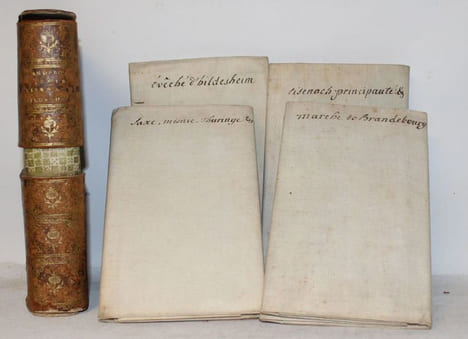 évêché d'hildesheim
eisenach-principauté &
Saxe, misnie, thuringe &c
marche de Brandebourg